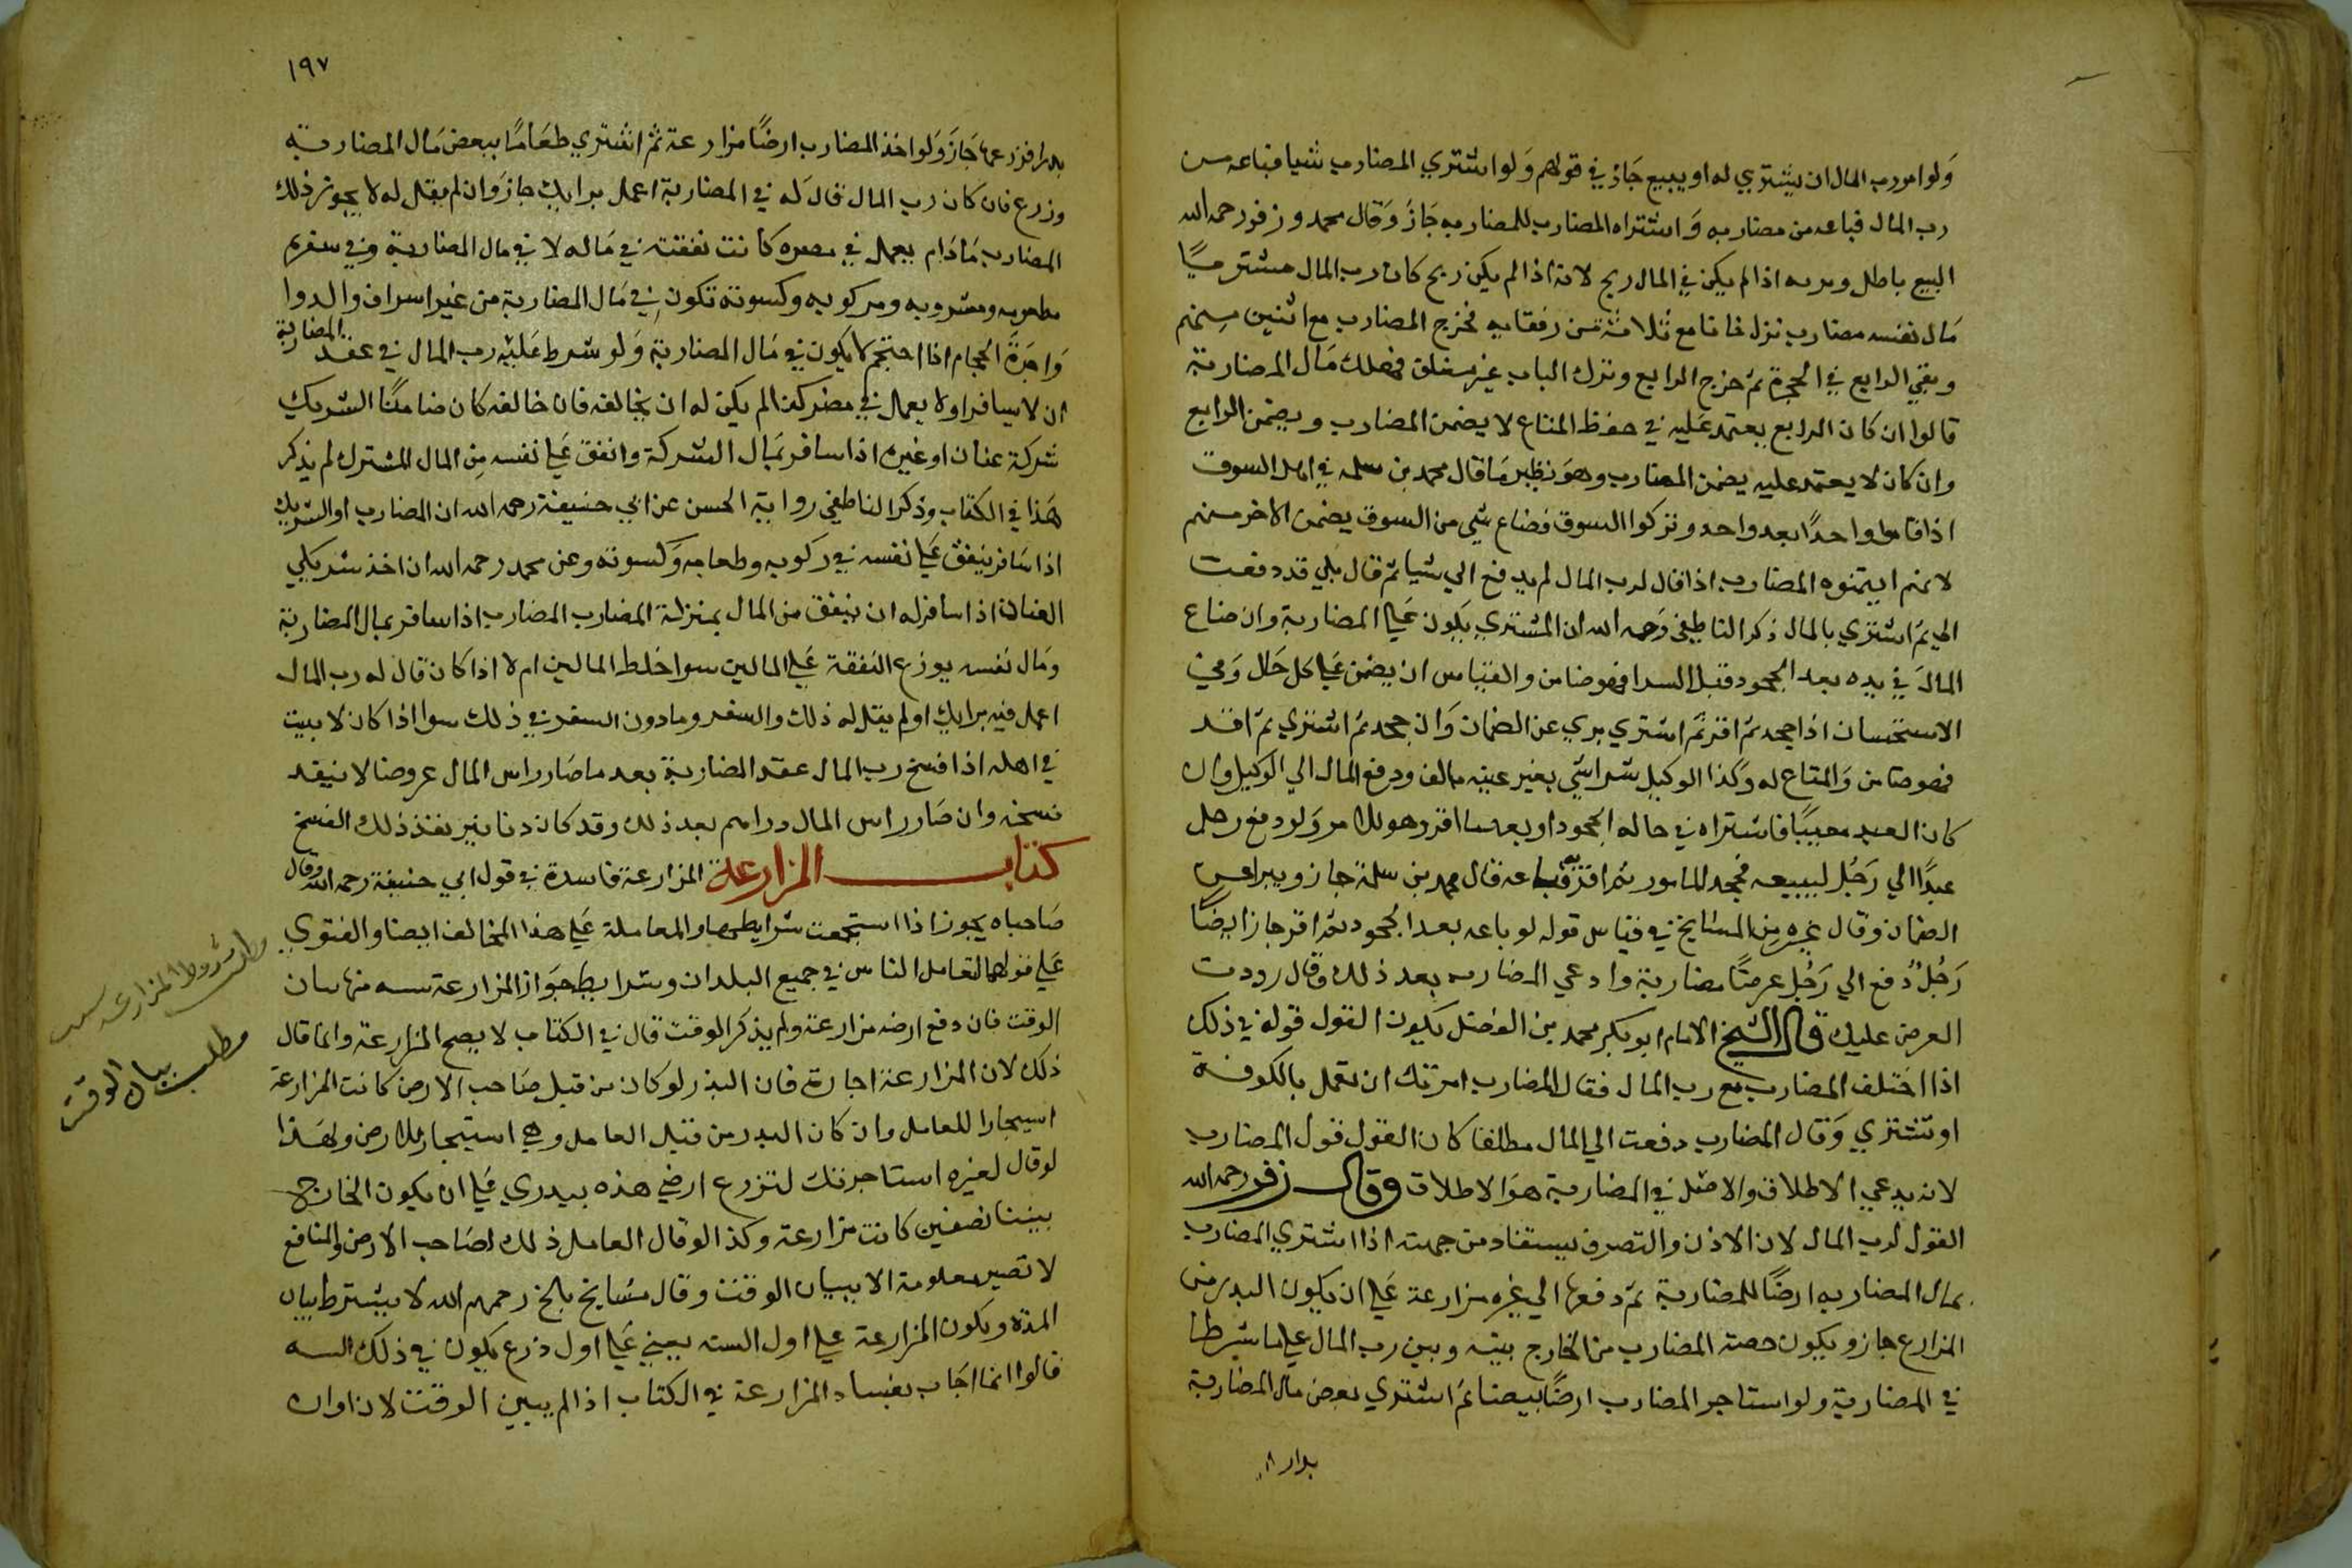 ولو امر رب المال ان يشتري له او يبيع جاز في قولهم ولو اشتري المضارب شيا فباعه من
رب المال فباعه من مضاربه واشتراه المضارب للمضاربه جاز وقال محمد وزفر رحمه الله
البيع باطل اذا لم يكن في المال ربح لانه اذا لم يكن ربح كان رب المال مشتريا
مال نفسه مضارب نزل خانا مع ثلاثة من رفقايه فخرج المضارب مع اثنين منهم
وبقي الرابع في الحجرة ثم خرج الرابع وترك الباب غير مغلق فهلك مال المضاربة
قالوا ان كان الرابع يعتمد عليه في حفظ المتاع لا يضمن المضارب ويضمن الرابع
وان كان لا يعتمد عليه يضمن المضارب وهو نظير ما قال محمد بن سلمه في اهل السوق
اذا قاموا واحدا بعد واحد وتركوا السوق فضاع شي من السوق يضمن الاخر منهم
لانهم ايتمنوه المضارب اذا قال لرب المال لم يدفع الي شيا ثم قال بلي قد دفعت
الي ثم اشتري بالمال ذكر الناطفي رحمه الله ان المشتري يكون علي المضاربة وان ضاع
المال في يده بعد الجحود قبل الشرا فهو ضامن والقياس ان يضمن علي كل حال وفي
الاستحسان اذا جحد ثم اقر ثم اشتري بري عن الضمان وان جحد ثم اشتري ثم اقر
فهو ضامن والمتاع له وكذا الوكيل بشرا شي بغير عينه بالف ودفع المال الي الوكيل وان
كان العبد معينا فاشتراه في حالة الجحود او بعدما اقر وهو للامر ولو دفع رجل
عبدا الي رجل ليبيعه فجحد المامور ثم اقر به فباعه قال محمد بن سلمة جاز ويبرا عن
الضمان وقال غيره من المشايخ في قياس قوله لو باعه بعد الجحود ثم اقر جاز ايضا
رجل دفع الي رجل عرضا مضاربة وادعي المضارب بعد ذلك وقال رددت
العرض عليك قال الشيخ الامام ابو بكر محمد بن الفضل يكون القول قوله في ذلك
اذا اختلف المضارب مع رب المال فقال المضارب امرتك ان تعمل بالكوفة
او تشتري وقال المضارب دفعت الي المال مطلقا كان القول قول المضارب
لانه يدعي الاطلاق والاصل في المضاربة هو الاطلاق وقال زفر رحمه الله
القول لرب المال لان الاذن والتصرف يستفاد من جهته اذا اشتري المضارب
بمال المضاربه ارضا للمضاربة ثم دفعها الي غيره مزارعة علي ان يكون البدر من
المزارع جاز ويكون حصة المضارب من الخارج بينه وبين رب المال علي ما شرطا
في المضاربة ولو استاجر المضارب ارضا بيضا ثم اشتري بعض مال المضاربة
١٩٧
فزرعها جاز ولو اخذ المضارب ارضا مزارعة ثم اشتري طعاما ببعض مال المضاربة
وزرع فان كان رب المال قال له في المضاربة اعمل برايك جاز وان لم يقل له لا يجوز ذلك
المضارب مادام يعمل في مصره كانت نفقته في ماله لا في مال المضاربة وفي سفره
مطعومه ومشروبه ومركوبه وكسوته تكون في مال المضاربة من غير اسراف والدوا
واجرة الحجام اذا احتجم لا يكون في مال المضاربة ولو شرط عليه رب المال في عقد المضاربة
ان لا يسافر او لا يعمل في مصر كذا لم يكن له ان يخالفه فان خالفه كان ضامنا الشريك
شركة عنان او غيره اذا سافر بمال الشركة وانفق علي نفسه من المال المشترك لم يذكر
هذا في الكتاب وذكر الناطفي رواية الحسن عن ابي حنيفة رحمه الله ان المضارب او الشريك
اذا سافر ينفق علي نفسه في ركوبه وطعامه وكسوته وعن محمد رحمه الله ان اخذ شريكي
العنان اذا سافر له ان ينفق من المال بمنزلة المضارب المضارب اذا سافر بمال المضاربة
ومال نفسه يوزع النفقة علي المالين سوا خلط المالين ام لا اذا كان قال له رب المال
اعمل فيه برايك او لم يقل له ذلك والسفر وما دون السفر في ذلك سوا اذا كان لا يبيت
في اهله اذا فسخ رب المال عقد المضاربة بعد ما صار راس المال عروضا لا ينفد
فسخه وان صار راس المال دراهم بعد ذلك وقد كان دنانير نفذ ذلك الفسخ
كتاب المزارعة المزارعة فاسدة في قول ابي حنيفة رحمه الله وقال
صاحباه يجوز اذا استجمعت شرايطها والمعاملة علي هذا الخلاف ايضا والفتوي
علي قولهما لتعامل الناس في جميع البلدان وشرايط جواز المزارعة سته منها بيان
الوقت فان دفع ارضه مزارعة ولم يذكر الوقت قال في الكتاب لا يصح المزارعة وانما قال
ذلك لان المزارعة اجارة فان البذر لو كان من قبل صاحب الارض كانت المزارعة
استيجارا للعامل وان كان البدر من قبل العامل وهي استيجار للارض ولهذا
لو قال لغيره استاجرتك لتزرع ارضي هذه ببدري علي ان يكون الخارج
بيننا نصفين كانت مزارعة وكذا لو قال العامل ذلك لصاحب الارض والمنافع
لا تصير معلومة الا ببيان الوقت وقال مشايخ بلخ رحمهم الله لا يشترط بيان
المدة ويكون المزارعة علي اول السنه يعني علي اول زرع يكون في ذلك السنه
قالوا انما اجاب بفساد المزارعة في الكتاب اذا لم يبين الوقت لان اوان
مطلب شروط المزارعة
مطلب بيان الوقت